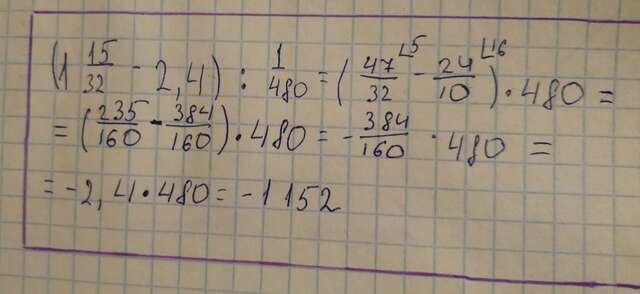 (1 15/32 - 2,4) : 1/480 = (47/32 ⌊5 - 24/10 ⌊16) · 480 =
= (235/160 - 384/160) · 480 = - 384/160 · 480 =
= -2,4 · 480 = -1 152